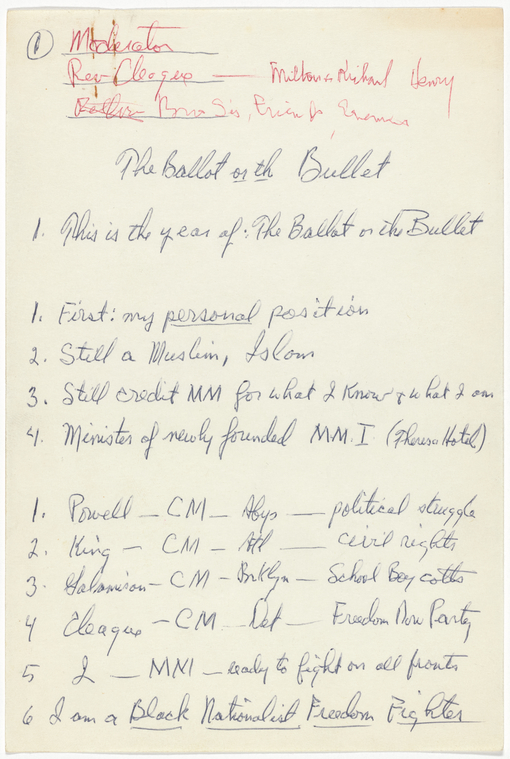 ① Moderator
Rev Cleague — Milton & Richard Henry
Bro Sis, Friends, Enemies
The Ballot or th Bullet
1. This is the year of: The Ballot or the Bullet
1. First: my personal position
2. Still a Muslim, Islam
3. Still credit MM for what I know & what I am
4. Minister of newly founded M.M.I. (Theresa Hotel)
1. Powell — CM — Abys — political struggle
2. King — CM — Atl — civil rights
3. Galamison — CM — Brklyn — School Boycotts
4 Cleague — CM — Det — Freedom Now Party
5 I — MMI — ready to fight on all fronts
6 I am a Black Nationalist Freedom Fighter